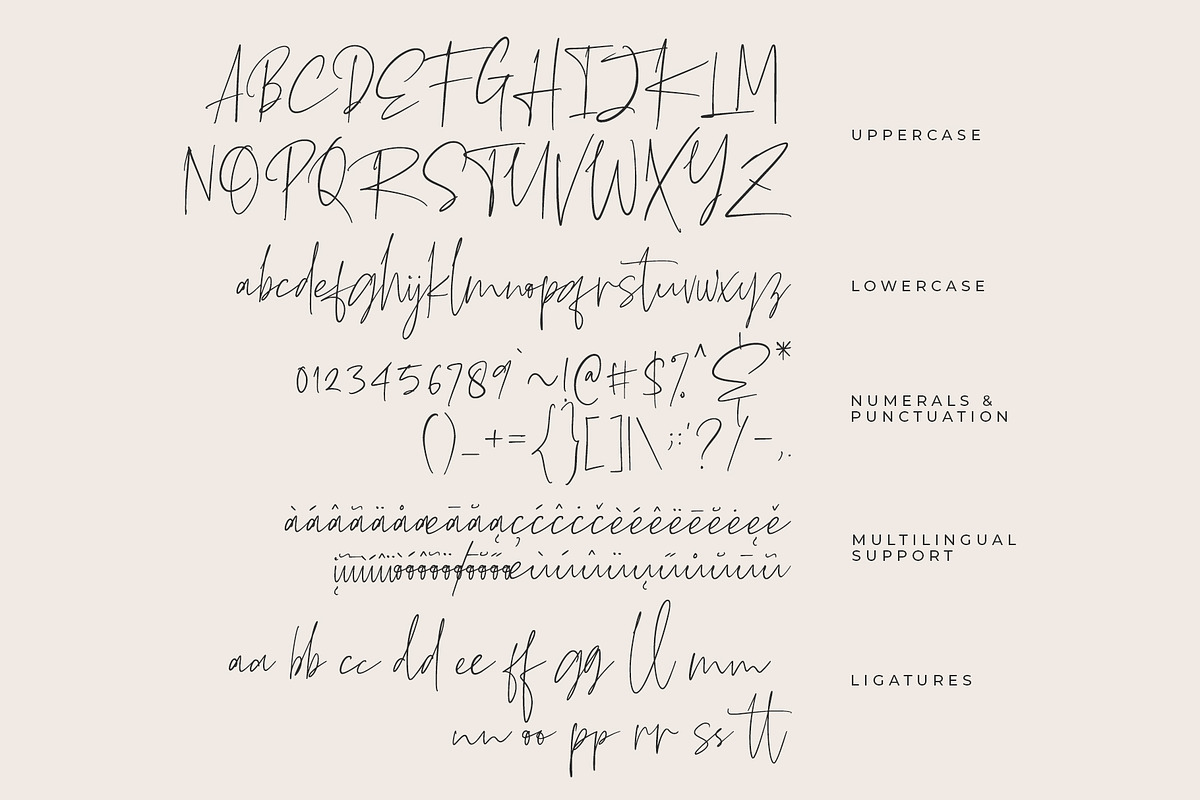 ABCDEFGHIJKLM
UPPERCASE
NOPQRSTUVWXYZ
abcdefghijklmnopqrstuvwxyz
LOWERCASE
0123456789`~!@#$%^&*
NUMERALS &
PUNCTUATION
()_+={}[]|\;:'?/-,.
àáâãäåæāăąçćĉċčèéêëēĕėęě
MULTILINGUAL
SUPPORT
aa bb cc dd ee ff gg ll mm
LIGATURES
nn oo pp rr ss tt